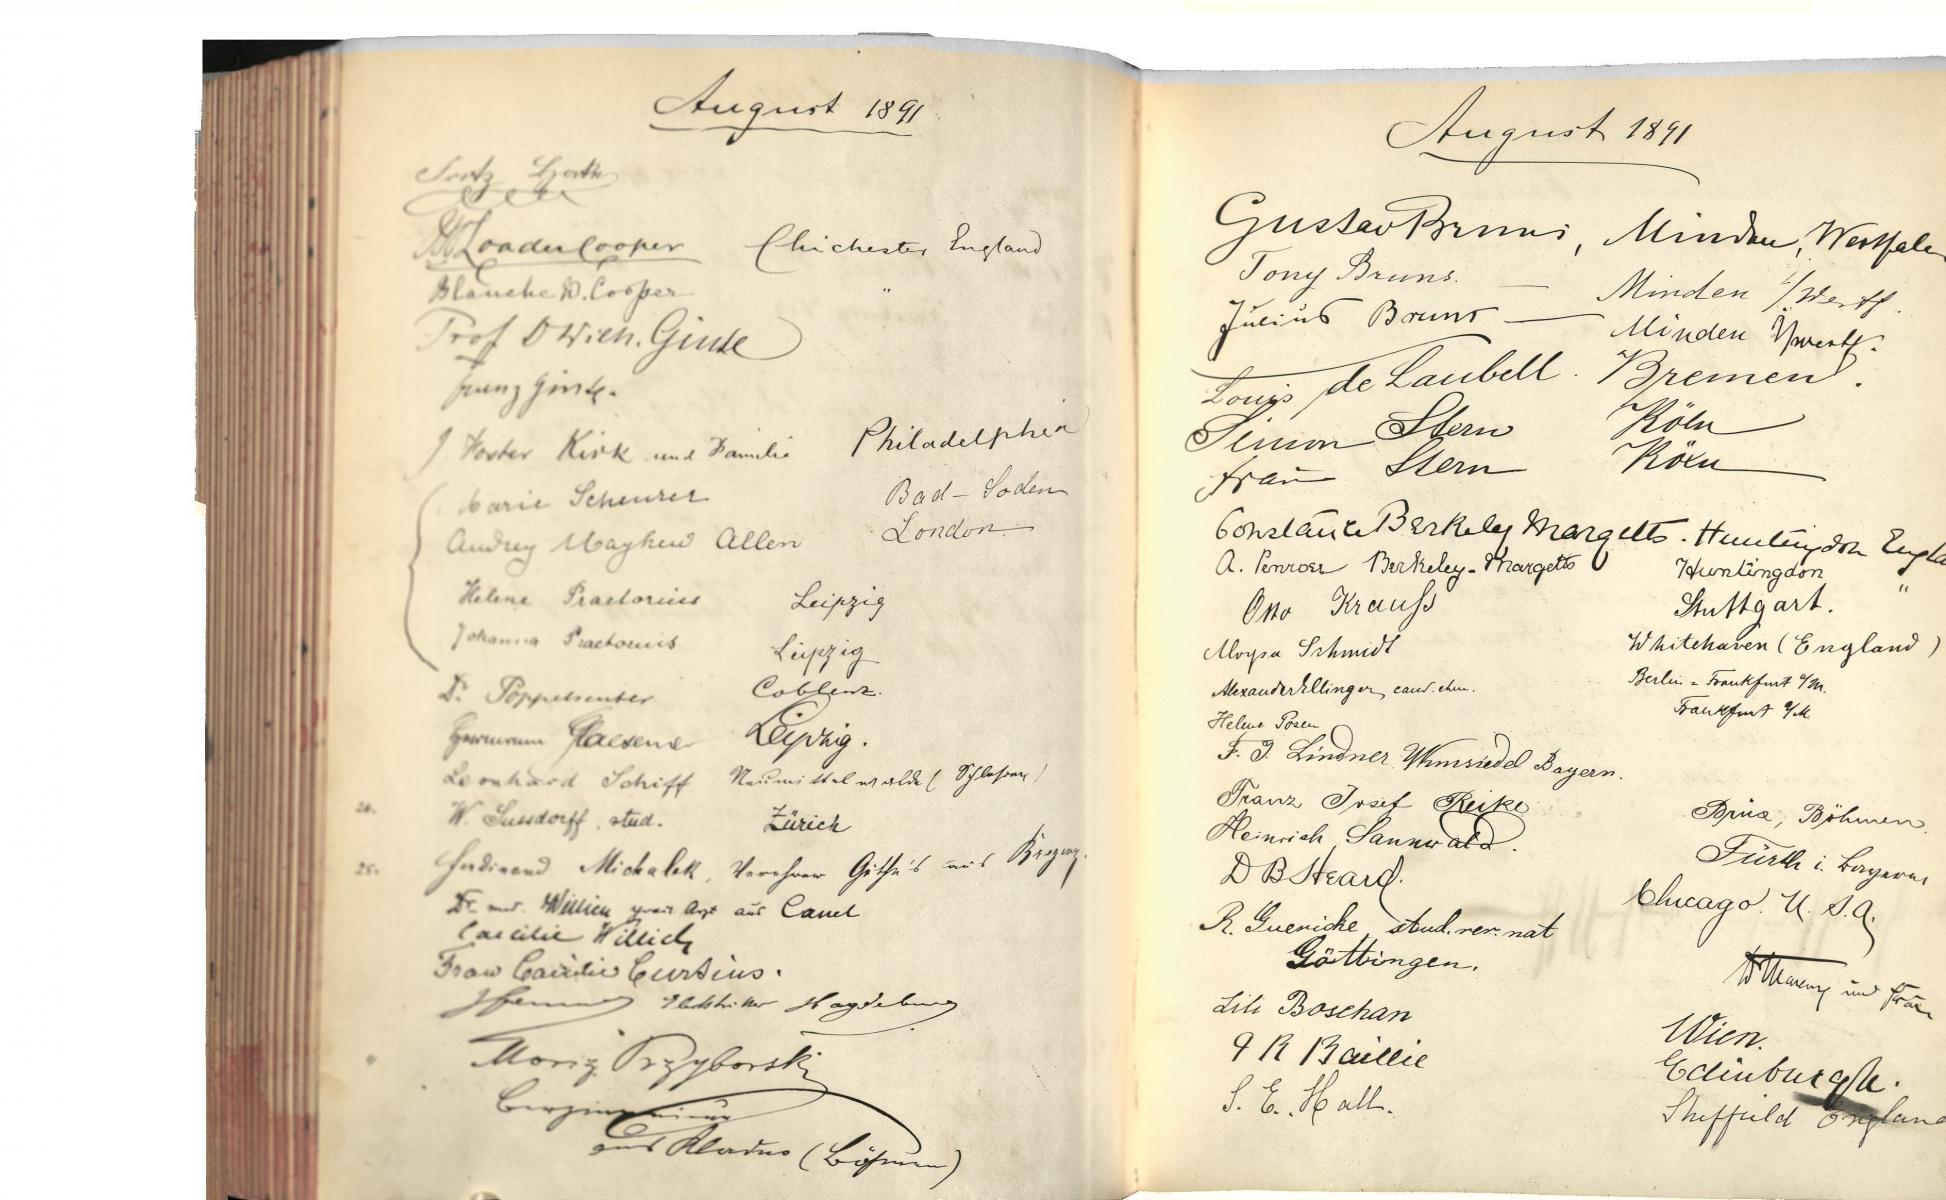 August 1891
Fritz
Loader Cooper Chichester England
Blanche D. Cooper "
Prof Dr Wilh.
J. Foster Kirk und Familie Philadelphia
Marie Scheurer Bad-Soden
Audrey Mayhew Allen London
Helene Praetorius Leipzig
Johanna Praetorius Leipzig
Dr. Coblenz.
Leipzig.
Leonhard Schiff
W. Sussdorff, stud. Zürich
25. Ferdinand Michalek, Verehrer Göthe's aus Bregenz.
Dr. med. Willich prakt. Arzt aus Cassel
Caecilie Willich
Frau Caecilie Curtius.
Magdeburg
Moriz Przyborski
Bergingenieur
aus Kladno (Böhmen)
August 1891
Gustav Bruns, Minden, Westfalen
Tony Bruns. — Minden i/Westf.
Julius Bruns — Minden i/Westf.
Louis de Laubell. Bremen.
Simon Stern Köln
Frau Stern Köln
Constance Berkeley Margetts. Huntingdon Engla
A. Penrose Berkeley-Margetts Huntingdon "
Otto Krauss Stuttgart.
Aloysa Schmidt Whitehaven (England)
Alexander Ellinger, cand. chem. Berlin - Frankfurt a/M.
Helene Posen Frankfurt a/M.
F. J. Lindner Wunsiedel Bayern.
Franz Josef Reike Brüx, Böhmen.
Heinrich Sannwald. Fürth i. Bayern
D B Heard. Chicago. U. S. A.
R. Guericke, stud. rer. nat
Göttingen.
und Frau
Lili Boschan Wien.
J R Baillie Edinburgh.
S. E. Hall. Sheffield England